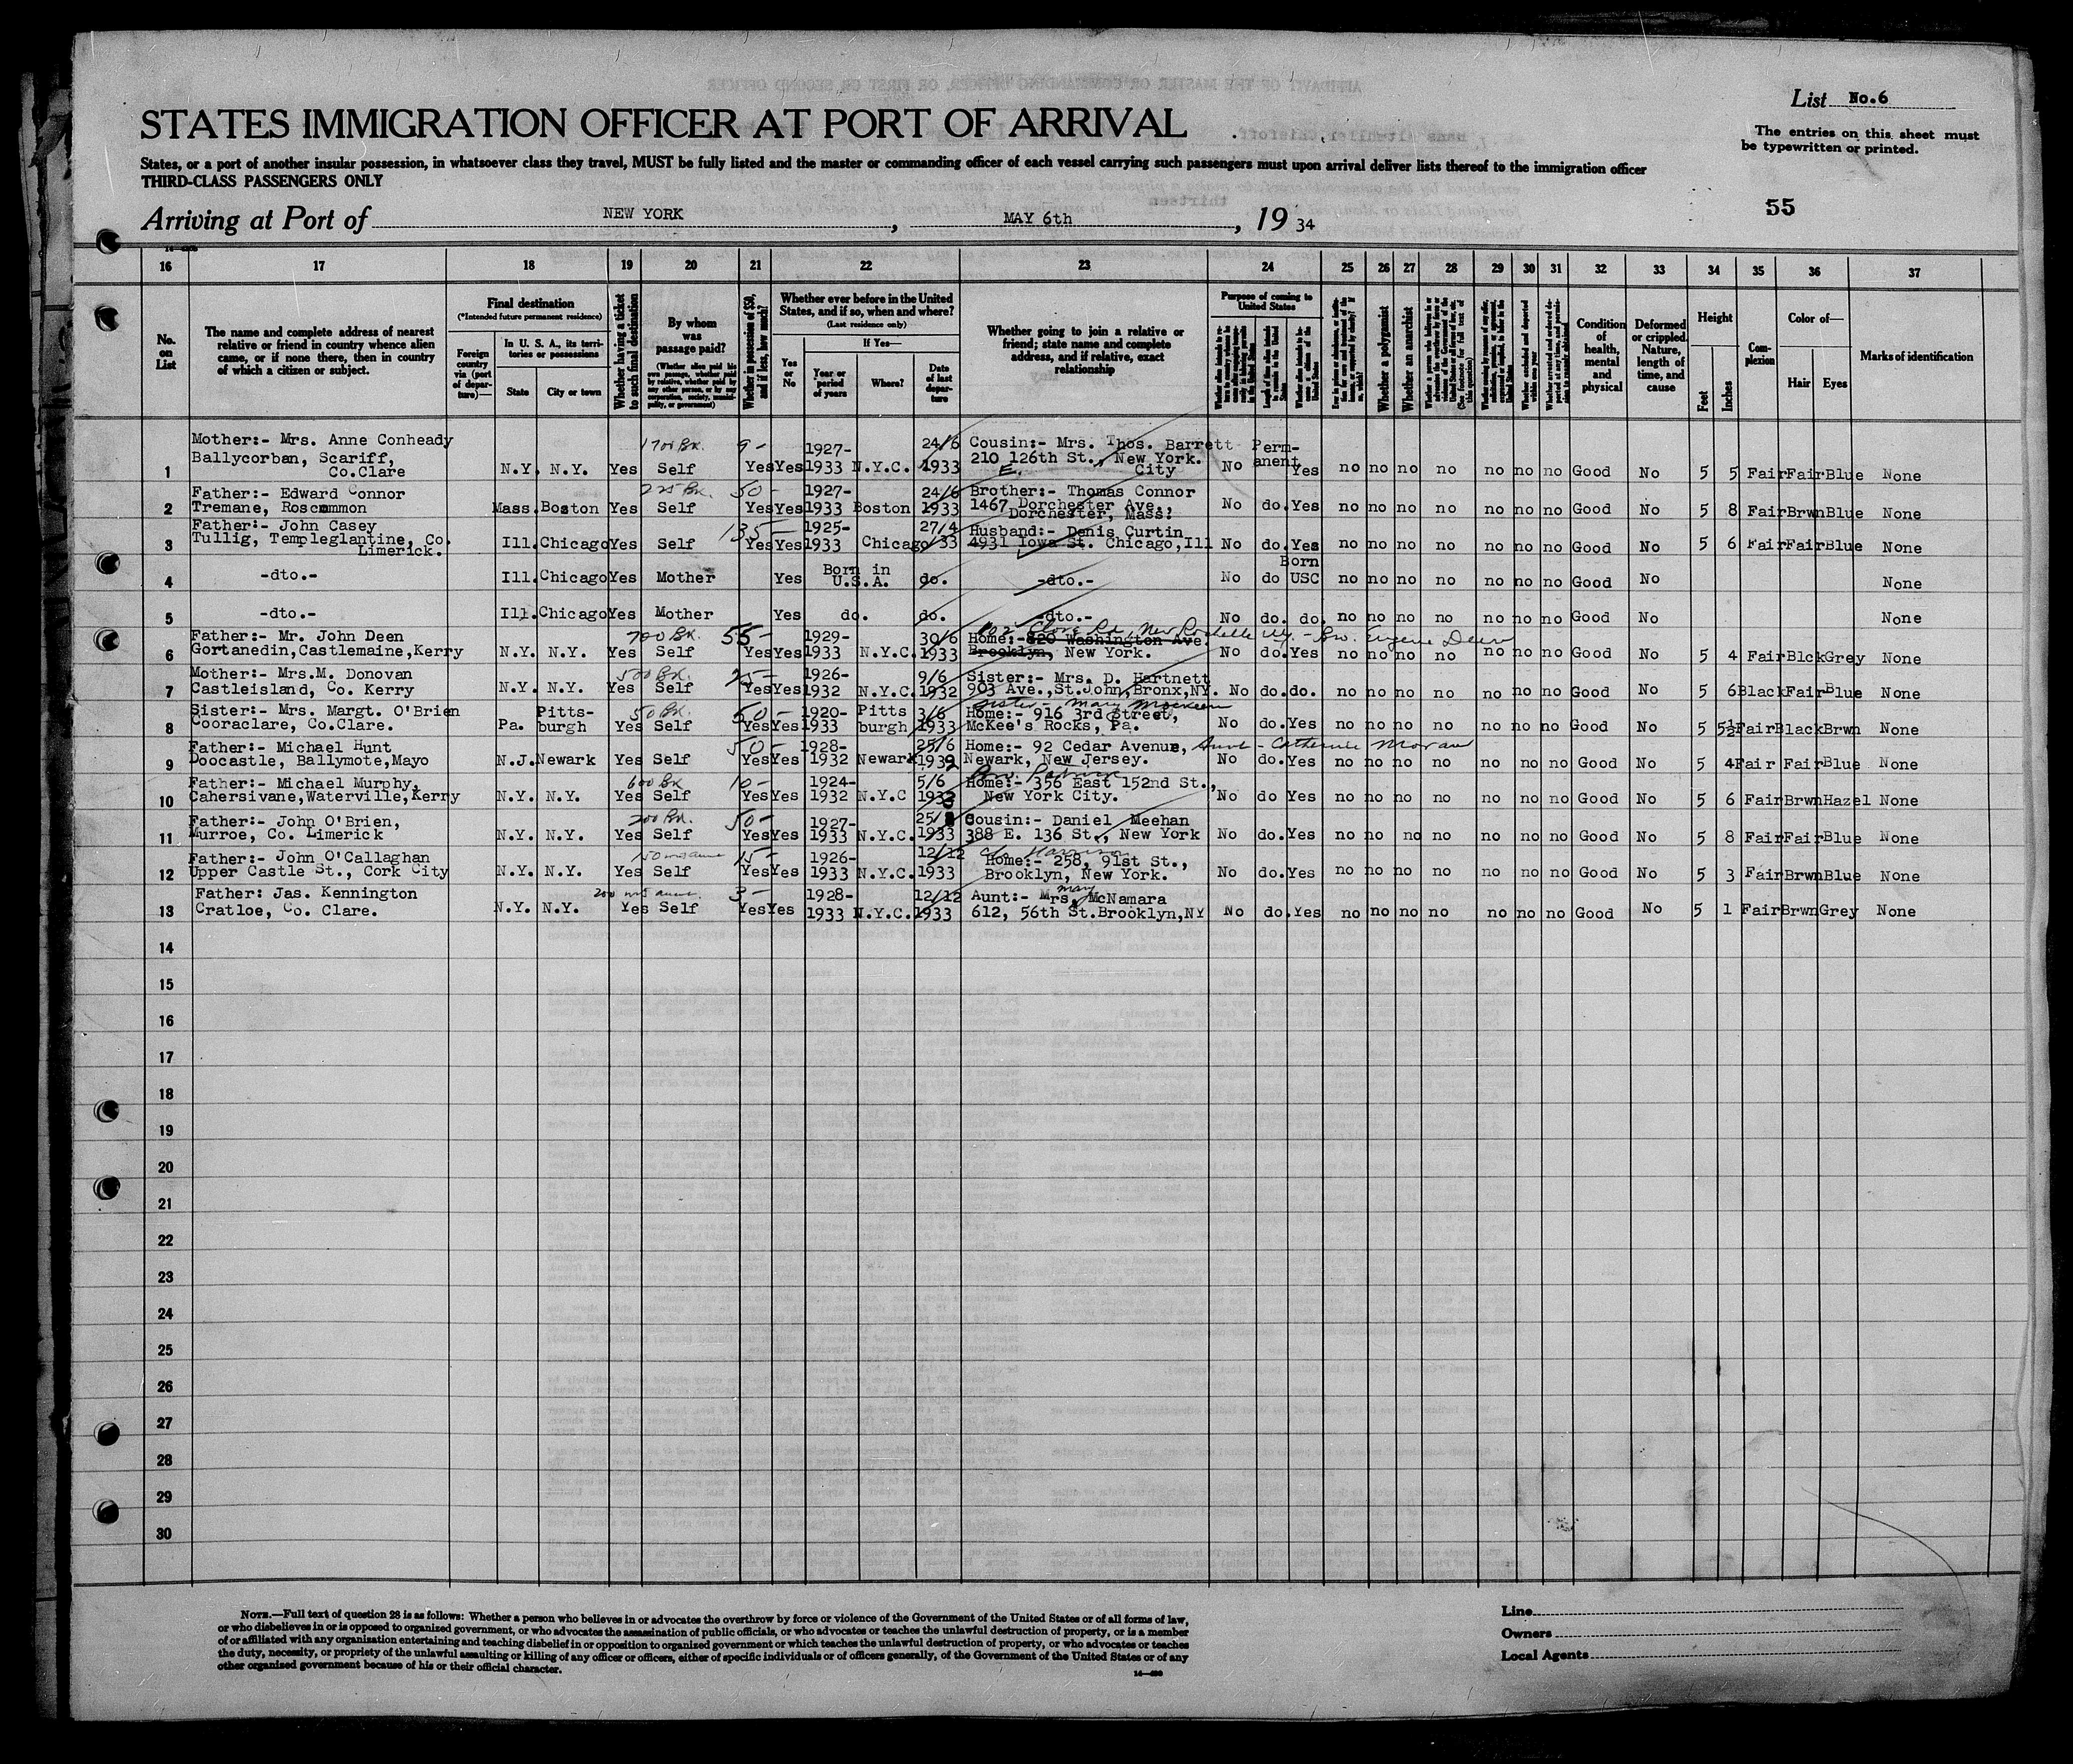 List No.6
STATES IMMIGRATION OFFICER AT PORT OF ARRIVAL
The entries on this sheet must
be typewritten or printed.
States, or a port of another insular possession, in whatsoever class they travel, MUST be fully listed and the master or commanding officer of each vessel carrying such passengers must upon arrival deliver lists thereof to the immigration officer
THIRD-CLASS PASSENGERS ONLY
55
Arriving at Port of NEW YORK, MAY 6th, 19 34
16 17 18 19 20 21 22 23 24 25 26 27 28 29 30 31 32 33 34 35 36 37
No. on List
The name and complete address of nearest relative or friend in country whence alien came, or if none there, then in country of which a citizen or subject.
Final destination
(*Intended future permanent residence)
Foreign country via (port of departure)—
In U. S. A., its territories or possessions
State
City or town
Whether having a ticket to such final destination
By whom was passage paid?
(Whether alien paid his own passage, whether paid by relative, whether paid by any other person, or by any corporation, society, municipality, or government)
Whether in possession of $50, and if less, how much?
Whether ever before in the United States, and if so, when and where?
(Last residence only)
Yes or No
If Yes—
Year or period of years
Where?
Date of last departure
Whether going to join a relative or friend; state name and complete address, and if relative, exact relationship
Purpose of coming to United States
Whether a polygamist
Whether an anarchist
Condition of health, mental and physical
Deformed or crippled. Nature, length of time, and cause
Height
Feet
Inches
Complexion
Color of—
Hair
Eyes
Marks of identification
1 Mother:- Mrs. Anne Conheady Ballycorban, Scariff, Co.Clare N.Y. N.Y. Yes 1700 Bk. Self 9- Yes Yes 1927-1933 N.Y.C. 24/6 1933 Cousin:- Mrs. Thos. Barrett 210 E. 126th St., New York. City No Permanent Yes no no no no no no no Good No 5 5 Fair Fair Blue None
2 Father:- Edward Connor Tremane, Roscommon Mass. Boston Yes 225 Bk. Self 50- Yes Yes 1927-1933 Boston 24/6 1933 Brother:- Thomas Connor 1467 Dorchester Ave., Dorchester, Mass: No do. Yes no no no no no no no Good No 5 8 Fair Brwn Blue None
3 Father:- John Casey Tullig, Templeglantine, Co. Limerick. Ill. Chicago Yes Self 135- Yes Yes 1925-1933 Chicago 27/4 33 Husband:- Denis Curtin 4931 Iowa St. Chicago, Ill No do. Yes no no no no no no no Good No 5 6 Fair Fair Blue None
4 -dto.- Ill. Chicago Yes Mother Yes Born in U.S.A. do. -dto.- No do Born USC no no no no no no no Good No None
5 -dto.- Ill. Chicago Yes Mother Yes do. do. -dto.- No do. do. no no no no no no no Good No None
6 Father:- Mr. John Deen Gortanedin, Castlemaine, Kerry N.Y. N.Y. Yes 700 Bk. Self 55- Yes Yes 1929-1933 N.Y.C. 30/6 1933 Home:- 820 Washington Ave. Brooklyn, New York. New Rochelle NY. - Bro. Eugene Deen No do. Yes no no no no no no no Good No 5 4 Fair Blck Grey None
7 Mother:- Mrs.M. Donovan Castleisland, Co. Kerry N.Y. N.Y. Yes 500 Bk. Self 25- Yes Yes 1926-1932 N.Y.C. 9/6 1932 Sister:- Mrs. D. Hartnett 903 Ave., St.John, Bronx, NY. No do. do. no no no no no no no Good No 5 6 Black Fair Blue None
8 Sister:- Mrs. Margt. O'Brien Cooraclare, Co.Clare. Pa. Pittsburgh Yes 50 Bk. Self 50- Yes Yes 1920-1933 Pittsburgh 3/6 1933 Sister - Mary Home:- 916 3rd Street, McKee's Rocks, Pa. No do. Yes no no no no no no no Good No 5 5½ Fair Black Brwn None
9 Father:- Michael Hunt Doocastle, Ballymote, Mayo N.J. Newark Yes Self 50- Yes Yes 1928-1932 Newark 25/6 1932 Home:- 92 Cedar Avenue, Newark, New Jersey. Aunt - Catherine Moran No do. Yes no no no no no no no Good No 5 4 Fair Fair Blue None
10 Father:- Michael Murphy, Cahersivane, Waterville, Kerry N.Y. N.Y. Yes 600 Bk Self 10- Yes Yes 1924-1932 N.Y.C 5/6 1933 Bro. Patrick Home:- 356 East 152nd St., New York City. No do Yes no no no no no no no Good No 5 6 Fair Brwn Hazel None
11 Father:- John O'Brien, Murroe, Co. Limerick N.Y. N.Y. Yes 200 Bk. Self 50- Yes Yes 1927-1933 N.Y.C. 1933 Cousin:- Daniel Meehan 388 E. 136 St., New York No do. Yes no no no no no no no Good No 5 8 Fair Fair Blue None
12 Father:- John O'Callaghan Upper Castle St., Cork City N.Y. N.Y. Yes Self 15- Yes Yes 1926-1933 N.Y.C. 12/12 1933 c/o Harrison Home:- 258, 91st St., Brooklyn, New York. No do. Yes no no no no no no no Good No 5 3 Fair Brwn Blue None
13 Father: Jas. Kennington Cratloe, Co. Clare. N.Y. N.Y. Yes Self 3- Yes Yes 1928-1933 N.Y.C. 12/12 1933 Aunt:- Mrs. Mary McNamara 612, 56th St. Brooklyn, NY No do. Yes no no no no no no no Good No 5 1 Fair Brwn Grey None
14
15
16
17
18
19
20
21
22
23
24
25
26
27
28
29
30
NOTE.—Full text of question 28 is as follows: Whether a person who believes in or advocates the overthrow by force or violence of the Government of the United States or of all forms of law,
or who disbelieves in or is opposed to organized government, or who advocates the assassination of public officials, or who advocates or teaches the unlawful destruction of property, or is a member
of or affiliated with any organization entertaining and teaching disbelief in or opposition to organized government or which teaches the unlawful destruction of property, or who advocates or teaches
the duty, necessity, or propriety of the unlawful assaulting or killing of any officer or officers, either of specific individuals or of officers generally, of the Government of the United States or of any
other organized government because of his or their official character.
Line
Owners
Local Agents